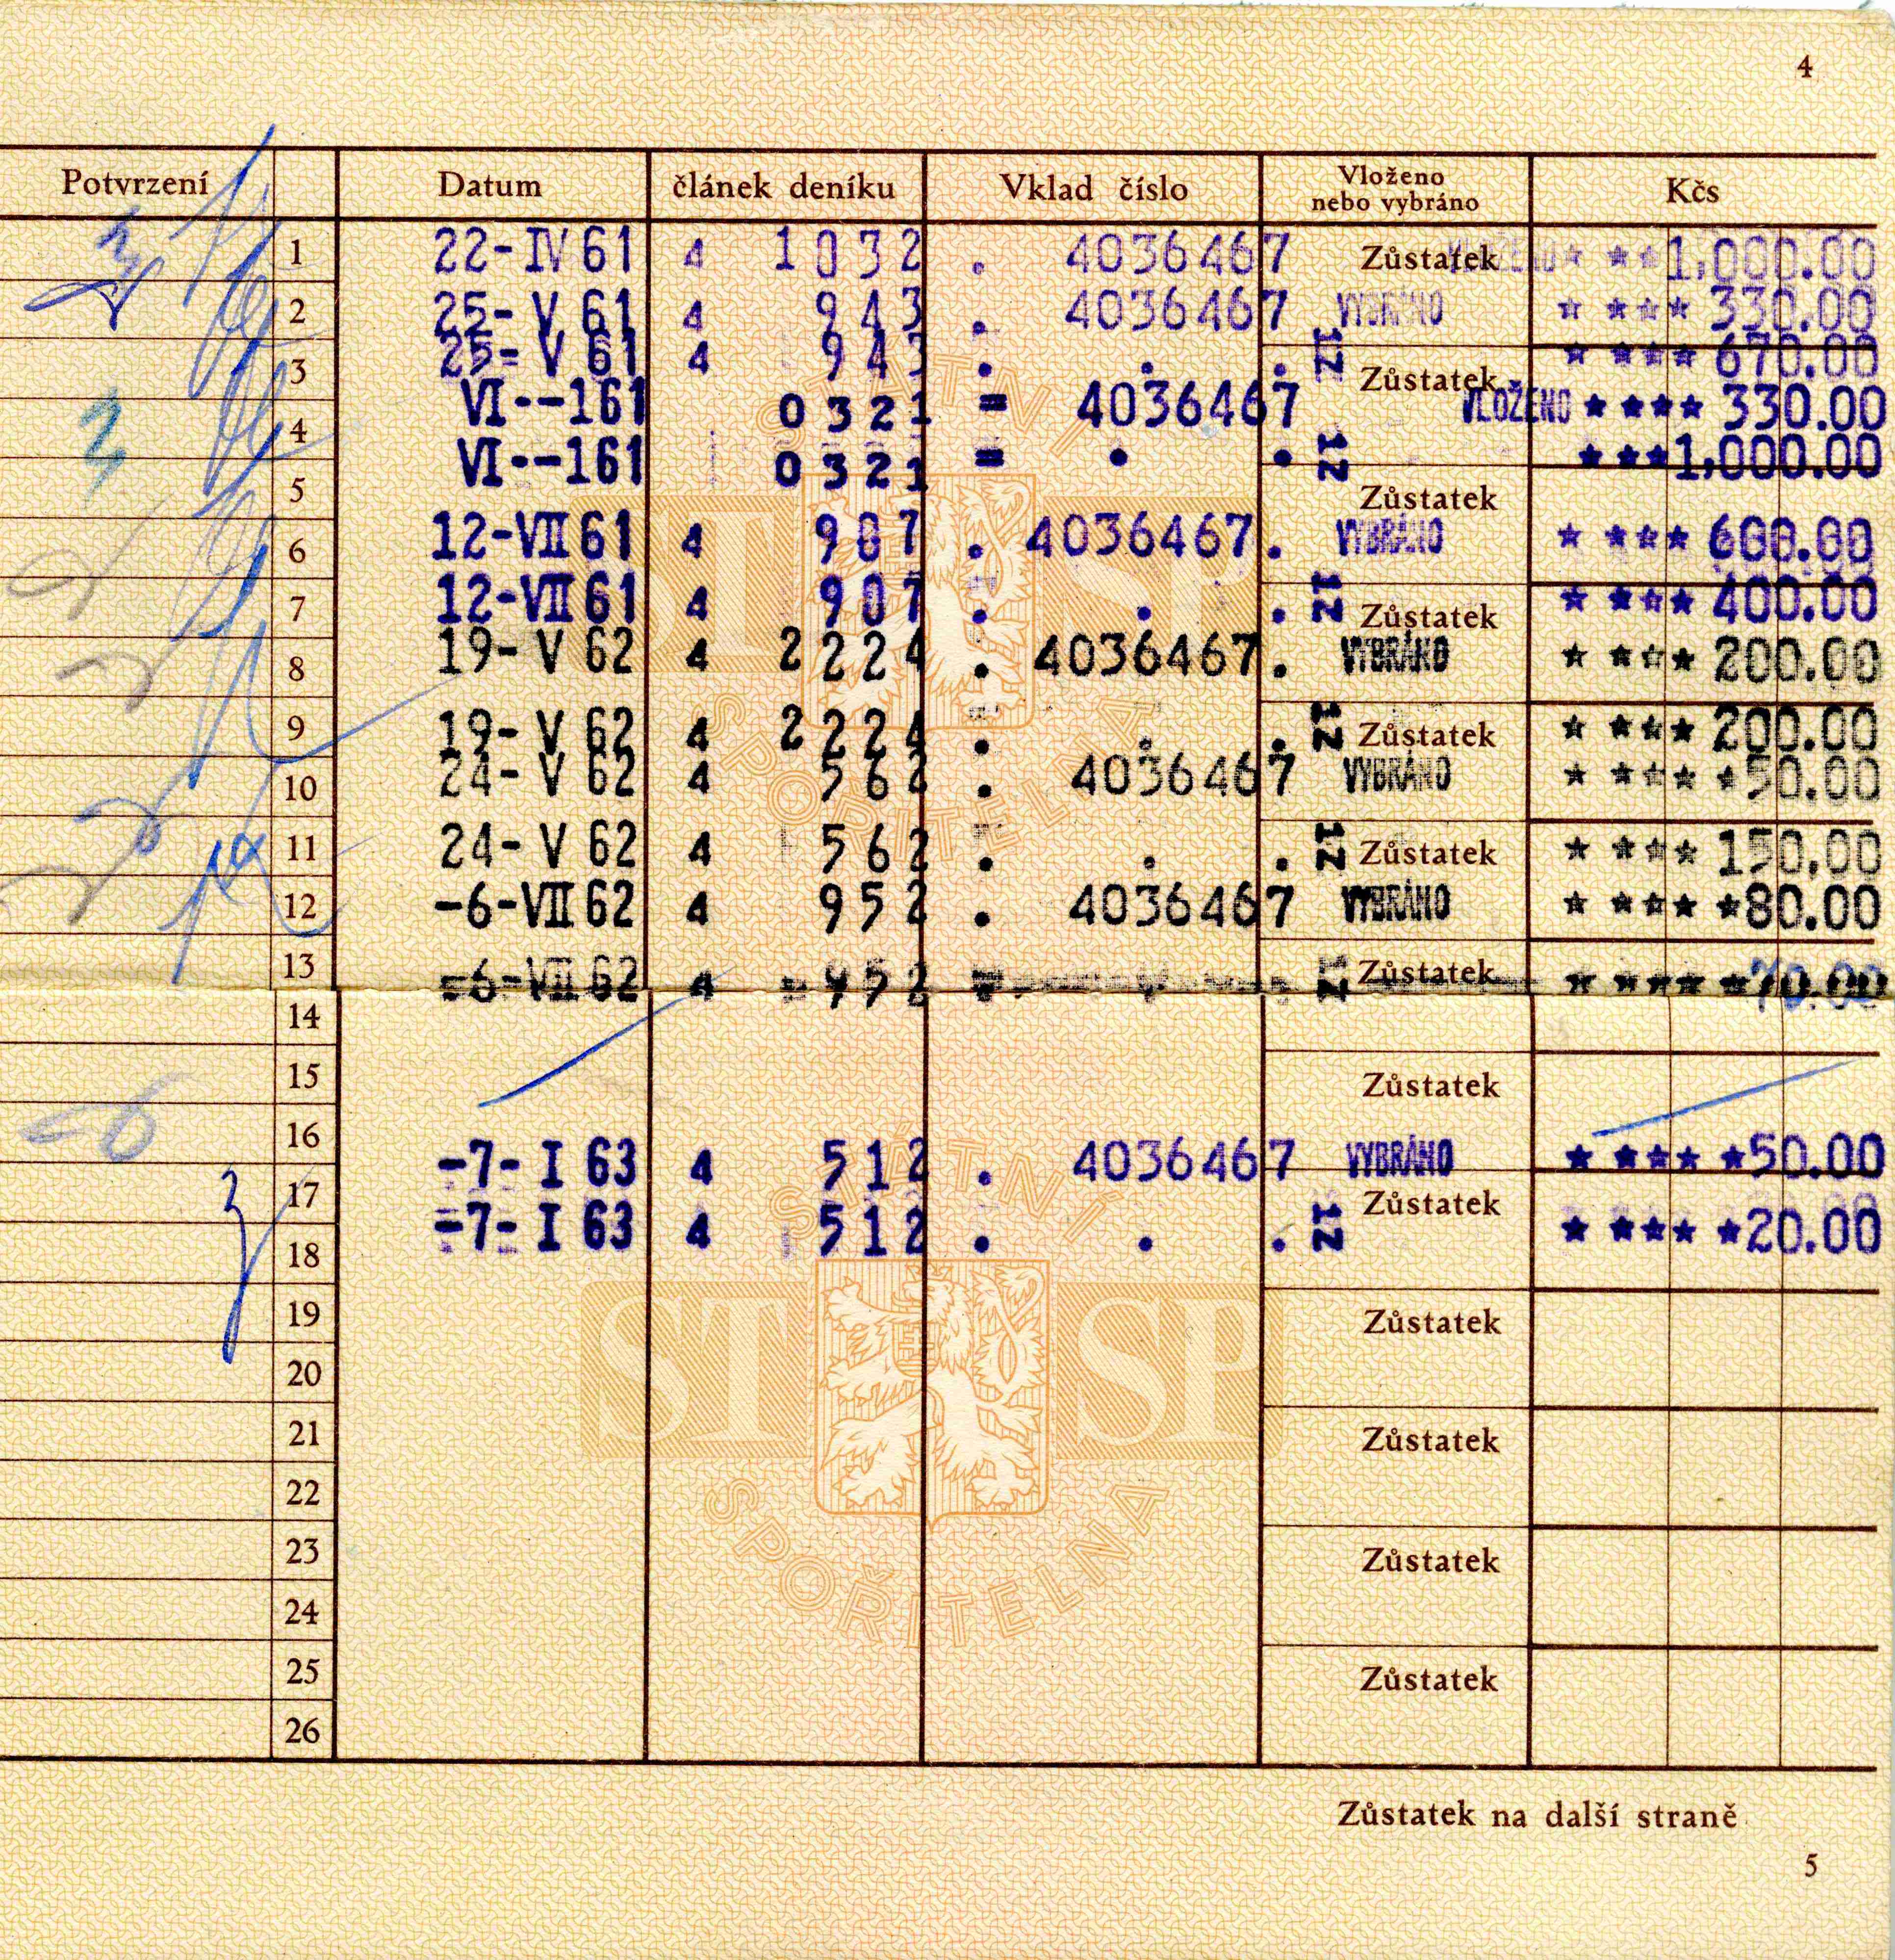 4
Potvrzení Datum článek deníku Vklad číslo Vloženo nebo vybráno Kčs
1 22-IV 61 4 1032 . 4036467 Zůstatek VLOŽENO ★ ★★1,000.00
2 25- V 61 4 943 . 4036467 VYBRÁNO ★ ★★★ 330.00
3 25- V 61 4 943 . . . 12 Zůstatek ★ ★★★ 670.00
4 VI--161 0321 = 4036467 VLOŽENO ★ ★★★ 330.00
5 VI--161 0321 = . . 12 Zůstatek ★ ★★1,000.00
6 12-VII 61 4 907 . 4036467. VYBRÁNO ★ ★★★ 600.00
7 12-VII 61 4 907 . . . 12 Zůstatek ★ ★★★ 400.00
8 19- V 62 4 2224 . 4036467. VYBRÁNO ★ ★★★ 200.00
9 19- V 62 4 2224 . . . 12 Zůstatek ★ ★★★ 200.00
10 24- V 62 4 562 . 4036467 VYBRÁNO ★ ★★★ ★50.00
11 24- V 62 4 562 . . . 12 Zůstatek ★ ★★★ 150.00
12 -6-VII 62 4 952 . 4036467 VYBRÁNO ★ ★★★ ★80.00
13 -6-VII 62 4 952 12 Zůstatek ★ ★★★ ★70.00
14
15 Zůstatek
16 -7- I 63 4 512 . 4036467 VYBRÁNO ★ ★★★ ★50.00
17 Zůstatek
18 -7- I 63 4 512 . . . 12 ★ ★★★ ★20.00
19 Zůstatek
20
21 Zůstatek
22
23 Zůstatek
24
25 Zůstatek
26
STÁTNÍ
ST SP
SPOŘITELNA
STÁTNÍ
ST SP
SPOŘITELNA
Zůstatek na další straně
5